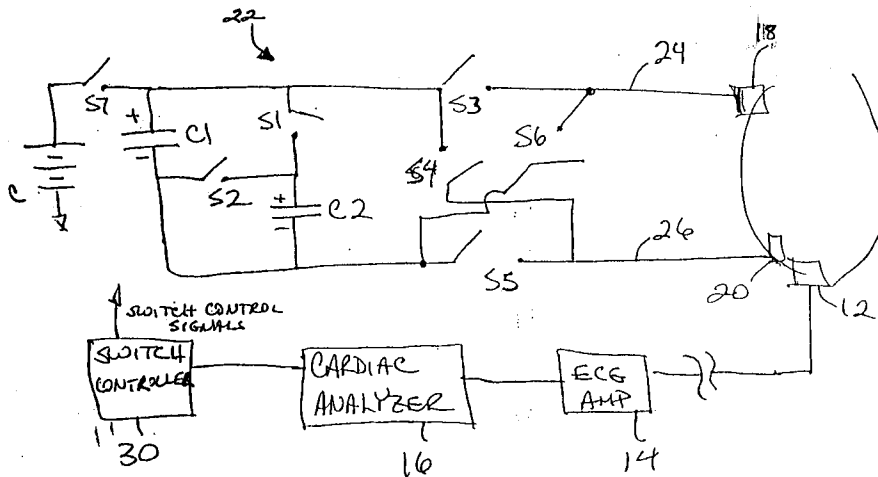 22
18
24
S7
+
C1
-
S1
S3
S6
S4
C
S2
+
C2
-
26
S5
20
12
SWITCH CONTROL
SIGNALS
SWITCH
CONTROLLER
CARDIAC
ANALYZER
ECG
AMP
30
16
14